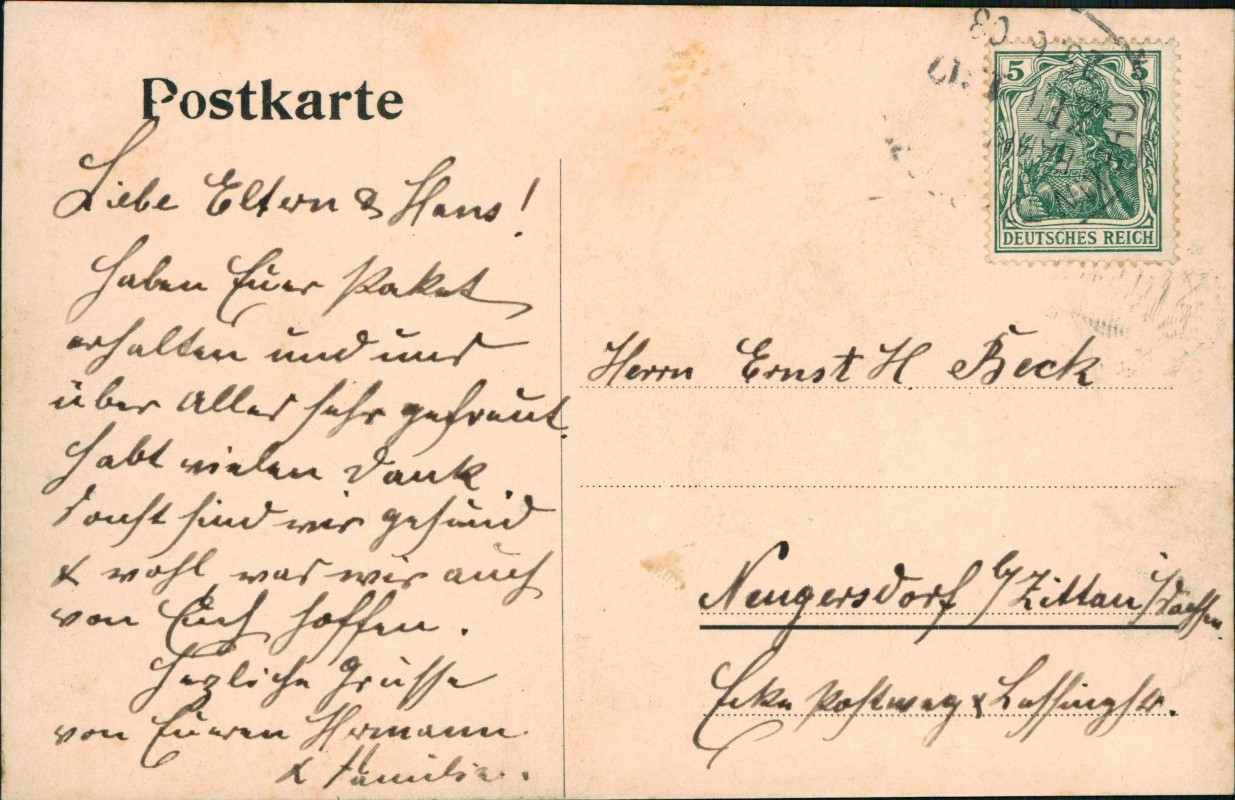 Postkarte
Liebe Eltern & Hans!
haben Euer Paket
erhalten und uns
über Alles sehr gefreut.
habt vielen Dank
sonst sind wir gesund
& wohl was wir auch
von Euch hoffen.
Herzliche Grüsse
von Eueren Hermann
& Familie.
5 5
DEUTSCHES REICH
Herrn Ernst H. Beck
Neugersdorf b/Zittau i/Sachsen
Ecke Postweg & Lessingstr.